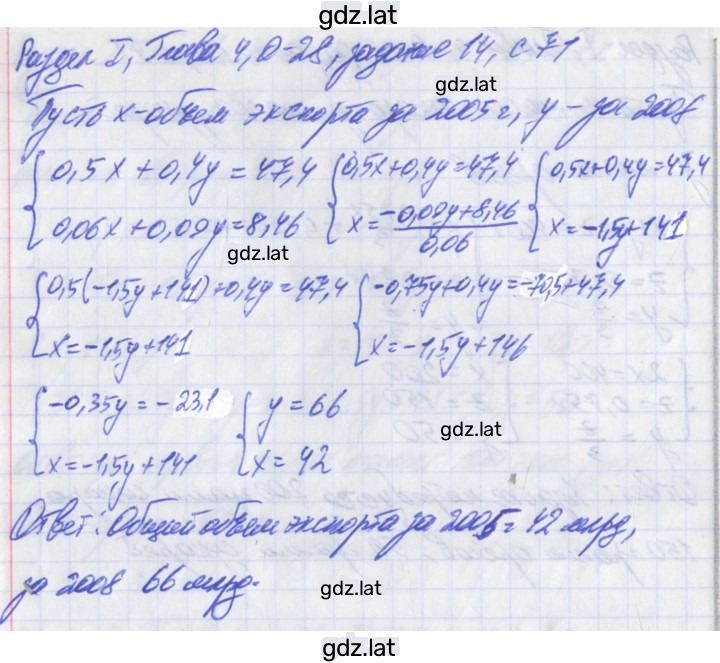 gdz.lat
Раздел I, Глава 4, О-28, задание 14, с. 71
gdz.lat
Пусть x - объем экспорта за 2005 г, y - за 2008
{ 0,5x + 0,4y = 47,4 { 0,5x+0,4y=47,4 { 0,5x+0,4y=47,4
0,06x + 0,09y = 8,46 x = (-0,09y+8,46)/0,06 x = -1,5y+141
gdz.lat
{ 0,5(-1,5y+141)+0,4y=47,4 { -0,75y+0,4y=-70,5+47,4
x = -1,5y+141 x = -1,5y+146
gdz.lat
{ -0,35y = -23,1 { y = 66
x = -1,5y+141 x = 42
gdz.lat
Ответ: Общий объем экспорта за 2005г 42 млрд,
за 2008 66 млрд.
gdz.lat
gdz.lat